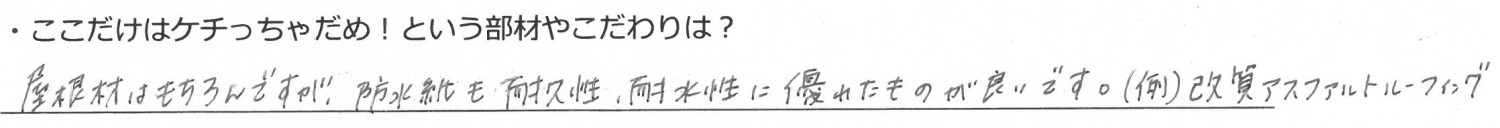 ・ここだけはケチっちゃだめ！という部材やこだわりは？
屋根材はもちろんですが、防水紙も耐久性、耐水性に優れたものが良いです。(例)改質アスファルトルーフィング